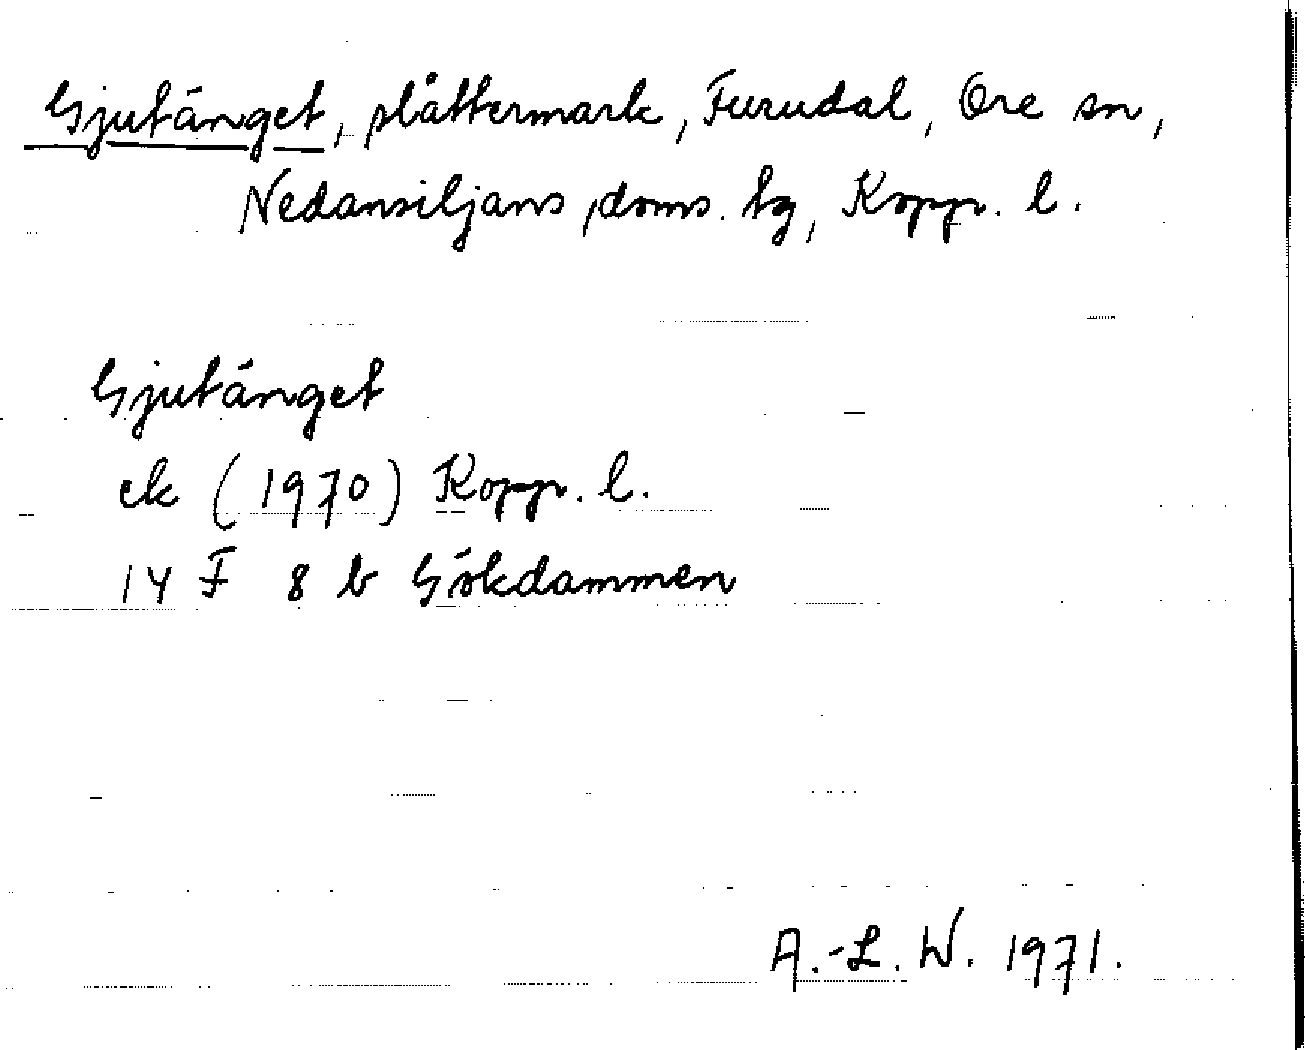 Gjutänget, plåttermark, Furudal, Ore sn,
Nedansiljans doms. tg, Kopp. l.
Gjutänget
ek (1970) Kopp. l.
14 F 8 b Gökdammen
A.-L. W. 1971.